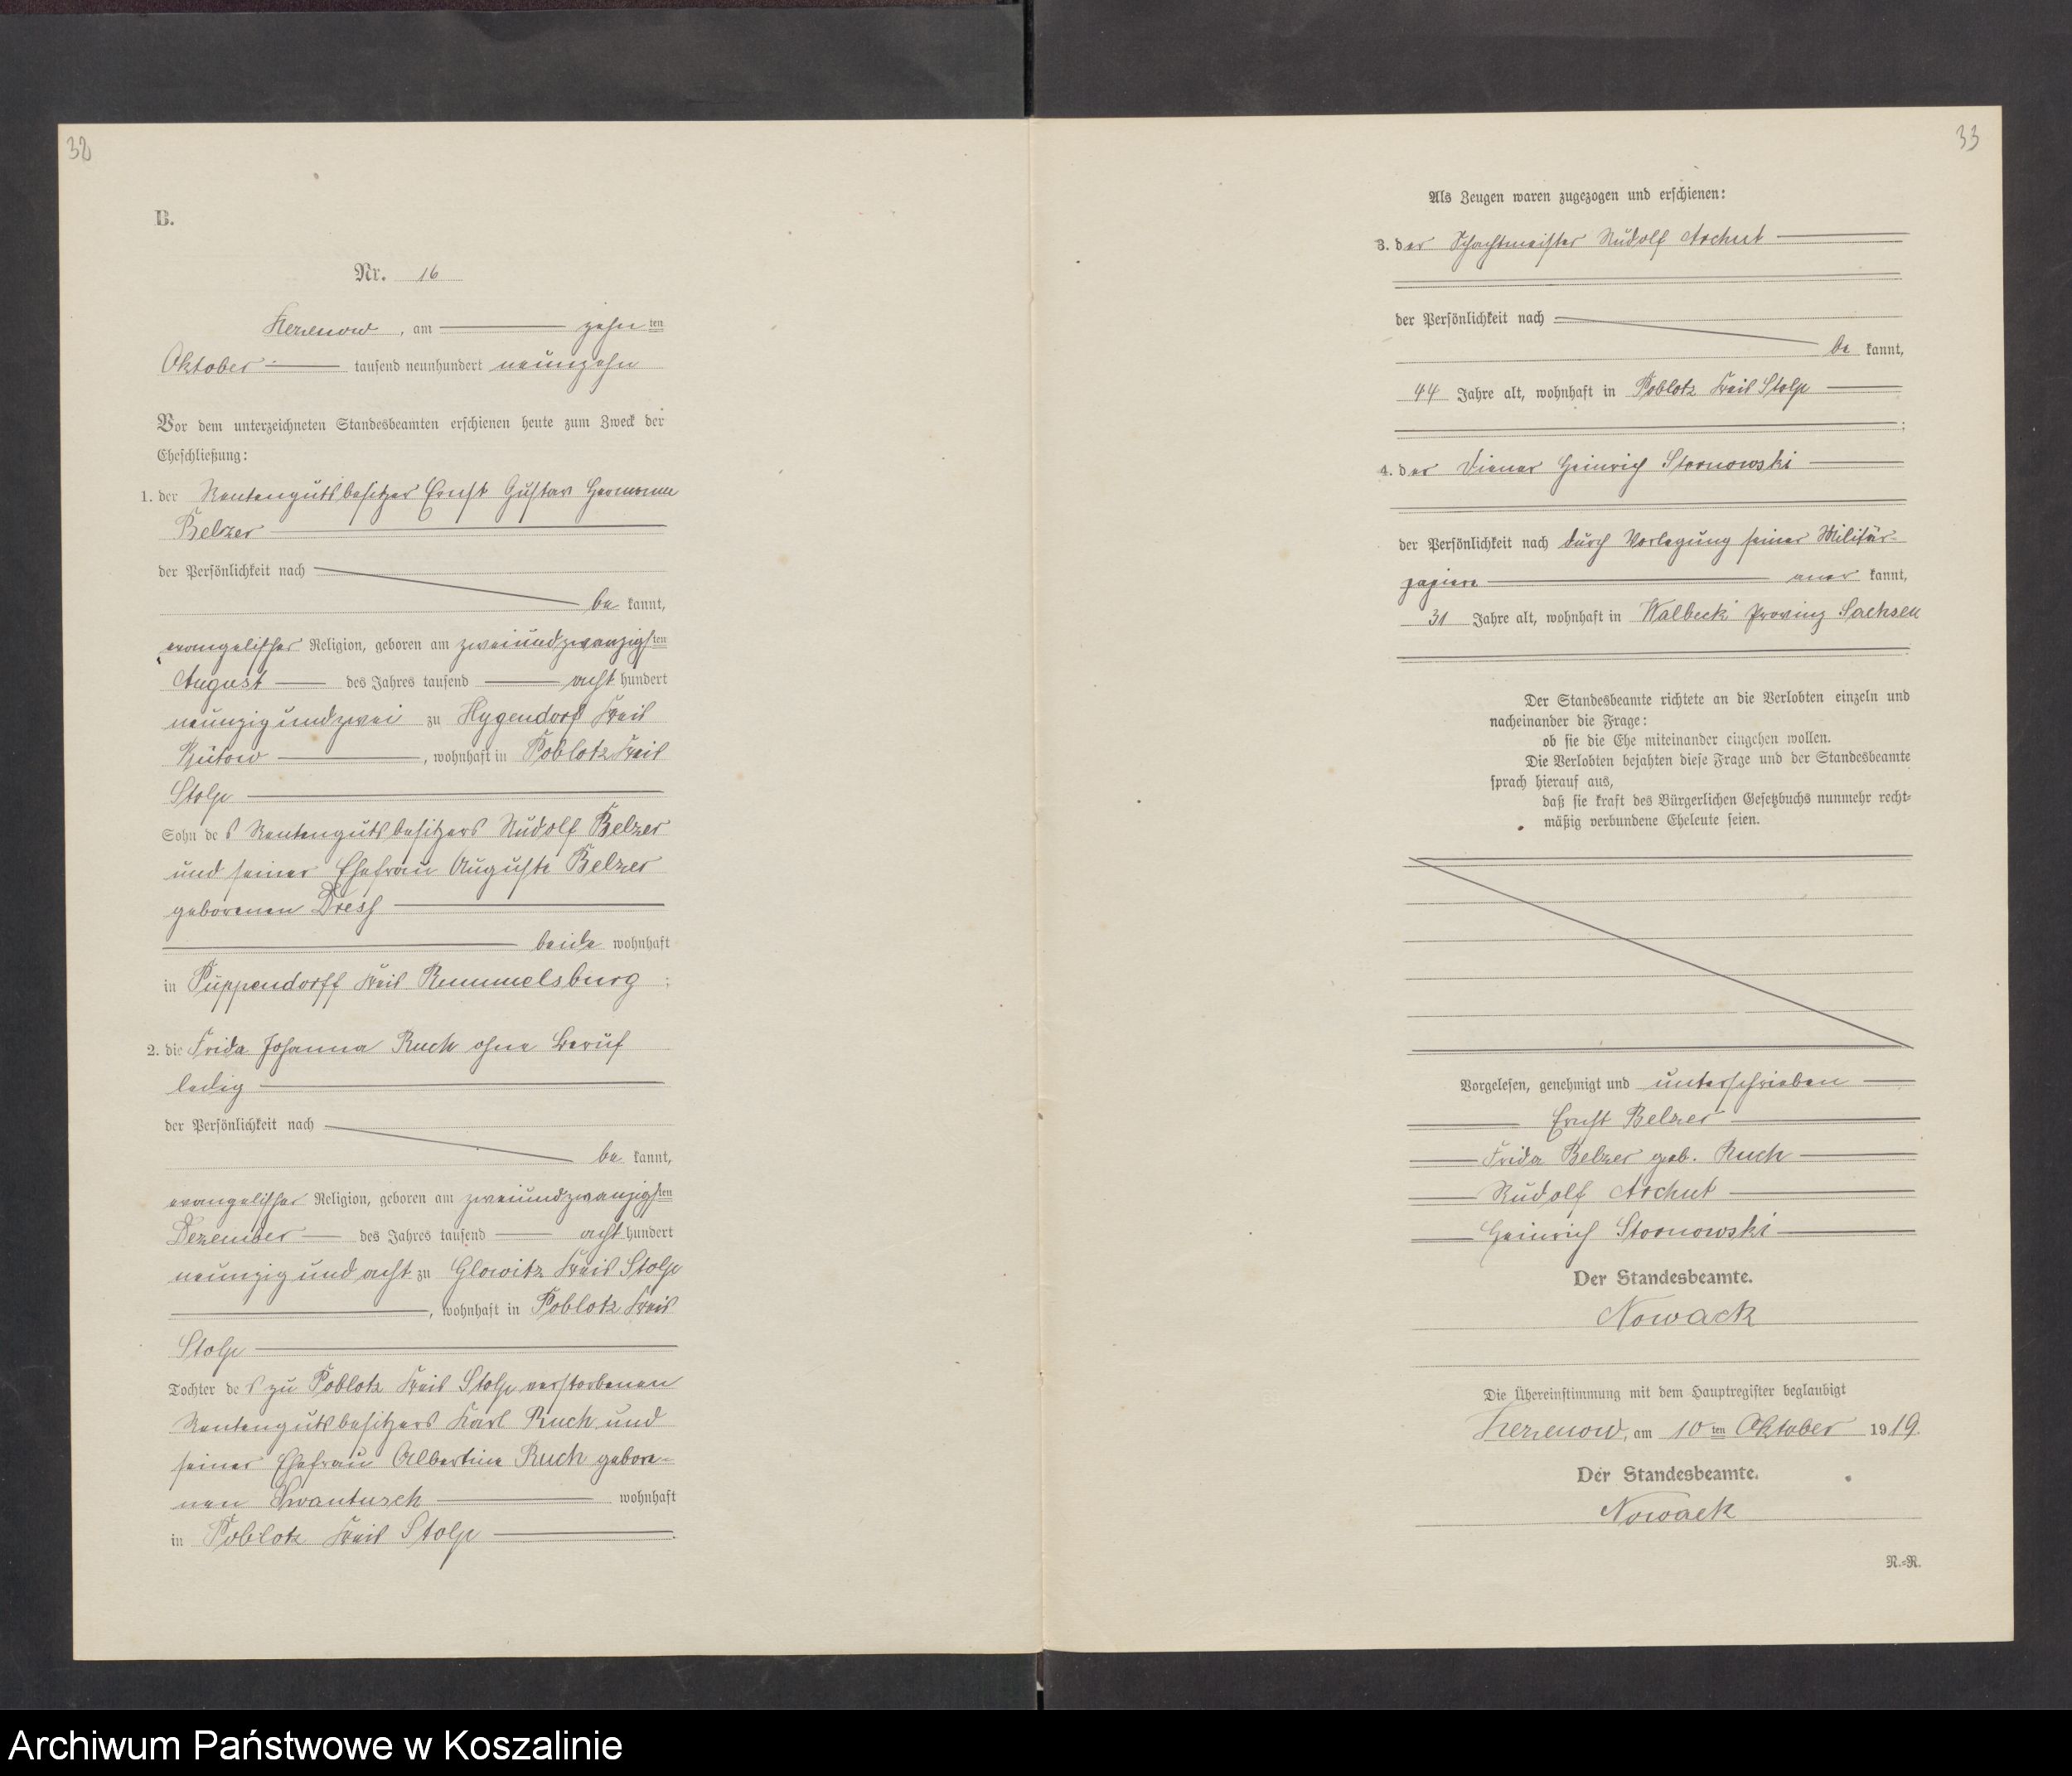 32
B.
Nr. 16
Zezenow, am zehnten
Oktober tausend neunhundert neunzehn
Vor dem unterzeichneten Standesbeamten erschienen heute zum Zweck der
Eheschließung:
1. der Rentengutsbesitzer Ernst Gustav Hermann
Belzer
der Persönlichkeit nach
be kannt,
evangelischer Religion, geboren am zweiundzwanzigsten
August des Jahres tausend acht hundert
neunzig und zwei zu Hygendorf Kreis
Bütow, wohnhaft in Poblotz Kreis
Stolp
Sohn des Rentengutsbesitzers Rudolf Belzer
und seiner Ehefrau Auguste Belzer
geborenen
beide wohnhaft
in Puppendorff Kreis Rummelsburg;
2. die Frida Johanna Ruch ohne Beruf
ledig
der Persönlichkeit nach
be kannt,
evangelischer Religion, geboren am zweiundzwanzigsten
Dezember des Jahres tausend acht hundert
neunzig und acht zu Glowitz Kreis Stolp
, wohnhaft in Poblotz Kreis
Stolp
Tochter des zu Poblotz Kreis Stolp verstorbenen
Rentengutsbesitzers Karl Ruch und
seiner Ehefrau Albertine Ruch gebore-
nen Swantusch wohnhaft
in Poblotz Kreis Stolp.
33
Als Zeugen waren zugezogen und erschienen:
3. der Schachtmeister Rudolf Archut
der Persönlichkeit nach
be kannt,
44 Jahre alt, wohnhaft in Poblotz Kreis Stolp
;
4. der Diener Heinrich Stornowski
der Persönlichkeit nach durch Vorlegung seiner Militär-
papiere aner kannt,
31 Jahre alt, wohnhaft in Walbeck Provinz Sachsen
Der Standesbeamte richtete an die Verlobten einzeln und
nacheinander die Frage:
ob sie die Ehe miteinander eingehen wollen.
Die Verlobten bejahten diese Frage und der Standesbeamte
sprach hierauf aus,
daß sie kraft des Bürgerlichen Gesetzbuchs nunmehr recht-
mäßig verbundene Eheleute seien.
Vorgelesen, genehmigt und unterschrieben
Ernst Belzer
Frida Belzer geb. Ruch
Rudolf Archut
Heinrich Stornowski
Der Standesbeamte.
Nowack
Die Übereinstimmung mit dem Hauptregister beglaubigt
Zezenow, am 10ten Oktober 1919.
Der Standesbeamte.
Nowack
R.-R.
Archiwum Państwowe w Koszalinie